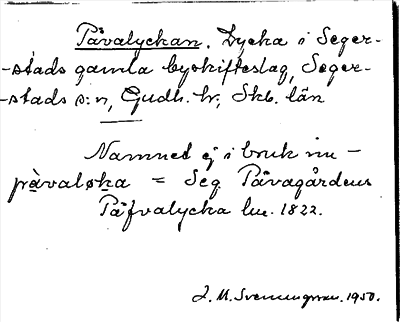 Påvalyckan. Lycka i Seger-
-stads gamla byskifteslag, Seger-
-stads s:n, Gudh. hr, Skb. län
Namnet ej i bruk nu –
påvaløka = Seg. Påvagårdens
Påfvalycka lm. 1822.
J. M. Svenungsson. 1950.